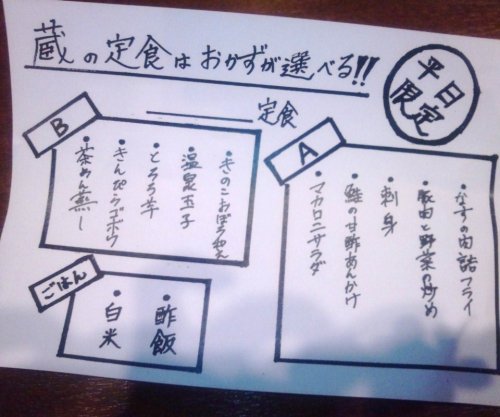 蔵の定食はおかずが選べる!!
平日
限定
定食
A
・なすの肉詰フライ
・豚肉と野菜の炒め
・刺身
・鮭の甘酢あんかけ
・マカロニサラダ
B
・きのこおぼろ和え
・温泉玉子
・とろろ芋
・きんぴらゴボウ
・茶わん蒸し
ごはん
・酢飯
・白米